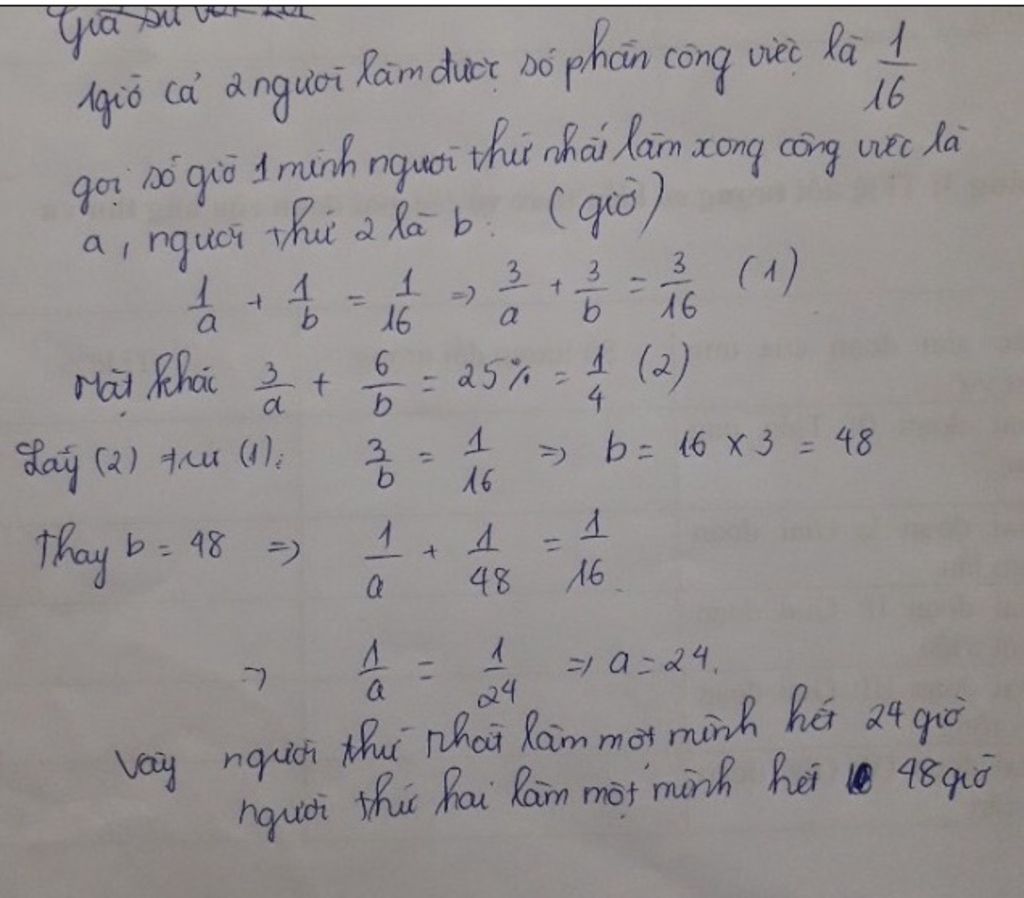 Giả sử
1giờ cả 2 người làm được số phần công việc là 1/16
gọi số giờ 1 mình người thứ nhất làm xong công việc là
a, người thứ 2 là b. (giờ)
1/a + 1/b = 1/16 => 3/a + 3/b = 3/16 (1)
Mặt khác 3/a + 6/b = 25% = 1/4 (2)
Lấy (2) trừ (1): 3/b = 1/16 => b = 16 x 3 = 48
Thay b = 48 => 1/a + 1/48 = 1/16.
=> 1/a = 1/24 => a = 24.
Vậy người thứ nhất làm một mình hết 24 giờ
người thứ hai làm một mình hết 48 giờ